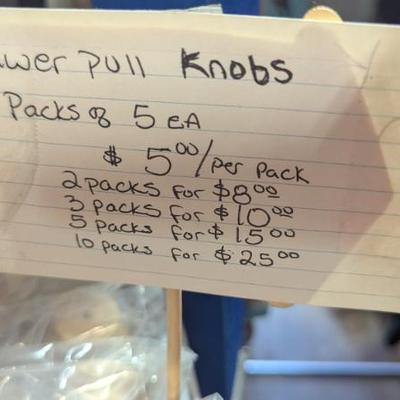 awer Pull Knobs
Packs of 5 EA
$ 5.00/per Pack
2 packs for $8.00
3 packs for $10.00
5 packs for $15.00
10 packs for $25.00